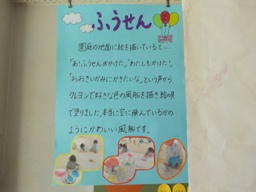 ふうせん
園庭の地面に絵を描いていると…
「あ!ふうせんがかけた。」「わたしもかけた!」
「おおきいがみにかきたいな。」という声から
クレヨンで好きな色の風船を描き絵の具
で塗りました。本当に空に飛んでいるかの
ようにかわいい風船です。